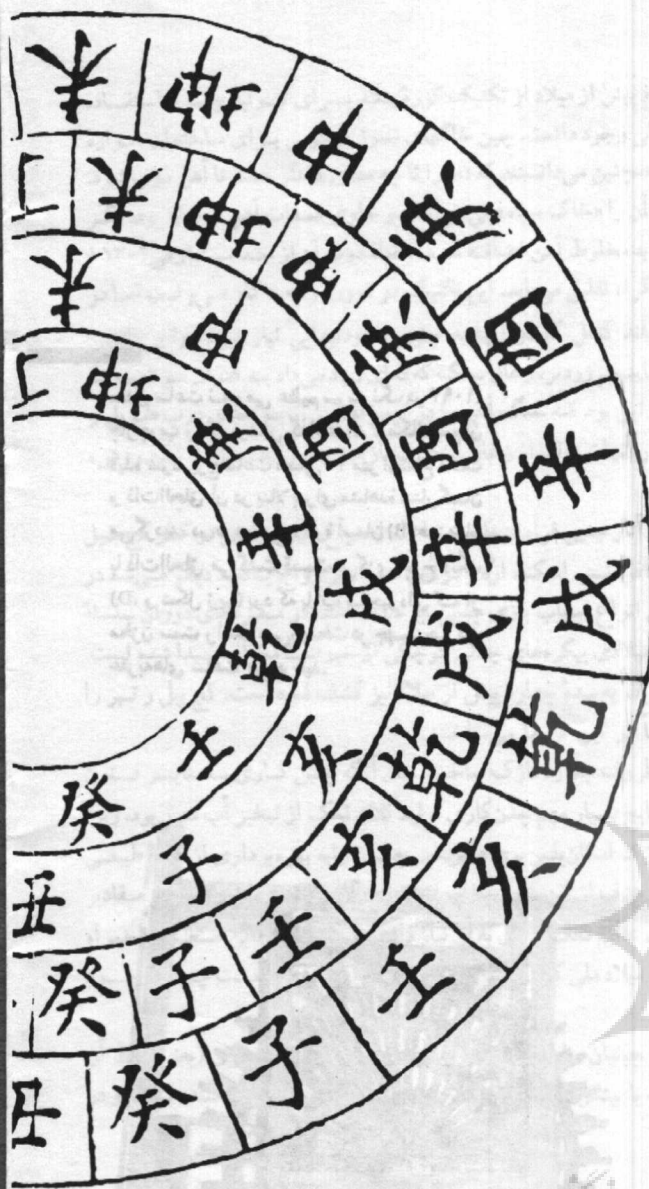 未 坤 申 庚 酉 辛 戌 乾 亥 壬 子 癸 丑
未 坤 申 庚 酉 辛 戌 乾 亥 壬 子 癸
未 申 酉 戌 亥 子 丑
坤 庚 辛 乾 壬 癸